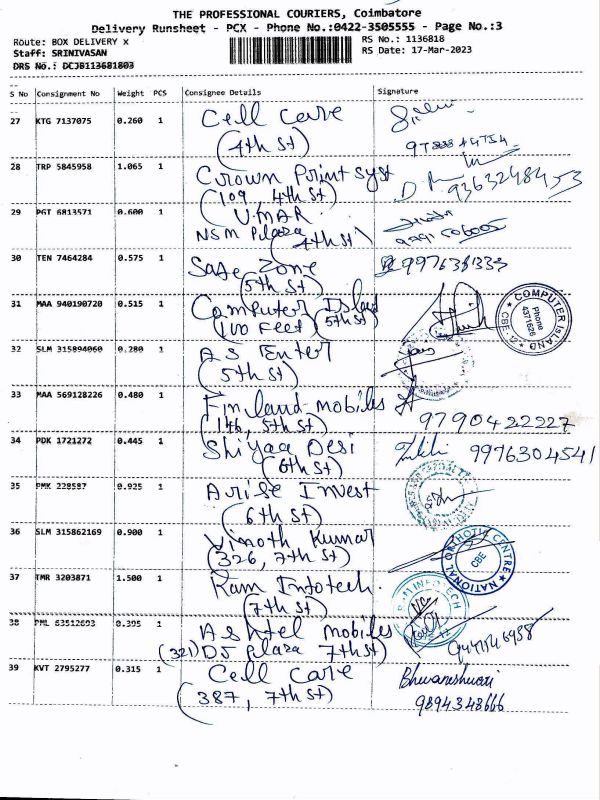 THE PROFESSIONAL COURIERS, Coimbatore
Delivery Runsheet - PCX - Phone No.:0422-3505555 - Page No.:3
Route: BOX DELIVERY x
RS No.: 1136818
Staff: SRINIVASAN
RS Date: 17-Mar-2023
DRS No.: DCJB113681803
S No Consignment No Weight PCS Consignee Details Signature
27 KTG 7137075 0.260 1 Cell care
(4th st)
28 TRP 5845958 1.065 1 Crown Print syst
(109, 4th st) 9363248453
29 PGT 6813571 0.600 1 UMAR
NSM Plaza (4th st)
30 TEN 7464284 0.575 1 Safe Zone
(5th st)
31 MAA 940190720 0.515 1 Computer Island
(100 Feet) (5th st)
COMPUTER ISLAND
Phone
4371626
CBE-12
32 SLM 315894060 0.280 1 AS Enter
(5th st)
33 MAA 569128226 0.480 1 Finland mobiles
(146, 5th st) 9790422227
34 PDK 1721272 0.445 1 Shiyaa Desi 9976304541
(6th st)
35 PMK 228587 0.925 1 Arise Invest
(6th st)
36 SLM 315862169 0.900 1 Vinoth Kumar
(326, 7th st)
NATIONAL ORTHOTIC CENTRE
CBE
37 TMR 3203871 1.500 1 Ram Infotech
(7th st)
RAM INFOTECH
38 PML 63512693 0.395 1 Ashtel mobiles
(321) DJ Plaza 7th st)
39 KVT 2795277 0.315 1 Cell care Bhuvaneshwari
(387, 7th st) 9894348666